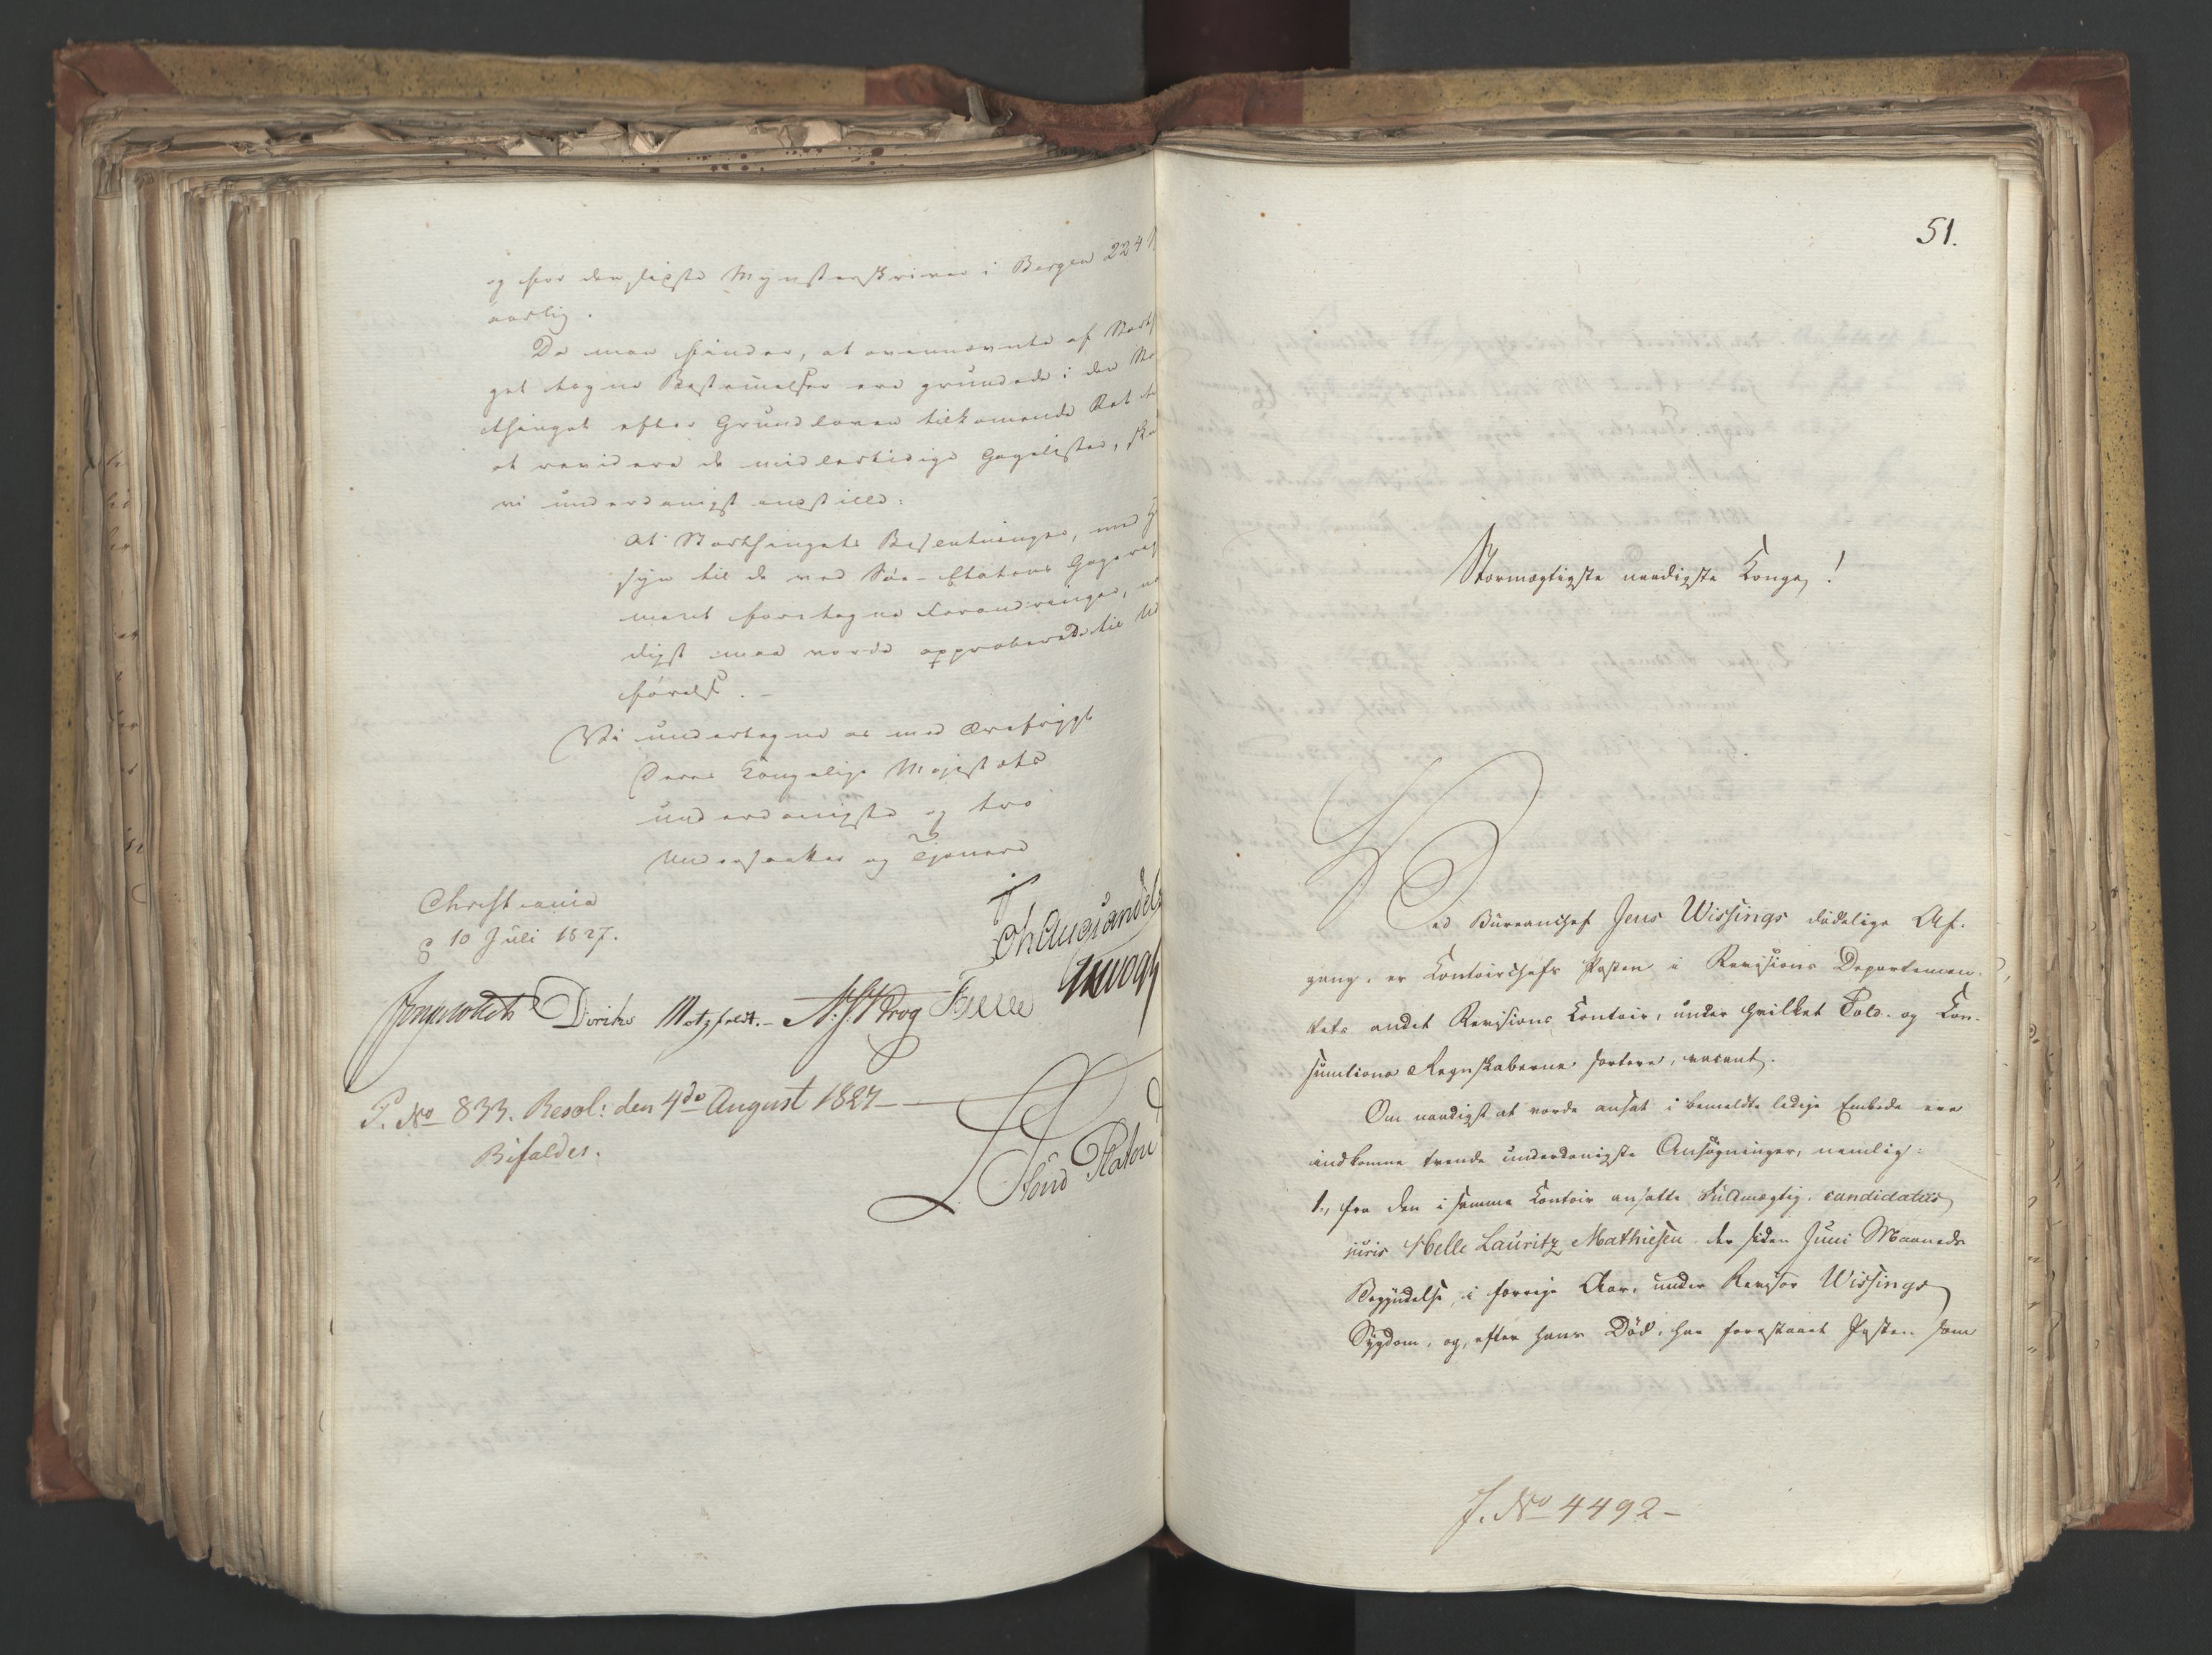 og for den sidste Mynsterskriver i Bergen 224
aarlig.
Da man finder, at ovennævnte af Storth
get tagne Bestemelser ere grundede i den Sto
thinget efter Grundloven tilkomende Ret til
at revidere de midlertidige Gagelister, skal
vi underdanigst indstille:
At Storthingets Beslutninger, med Hen
syn til de ved Søe-Etatens Gagereg
ment foretagne Forandringer, naa
digst maa vorde approberede til Ud
førelse.-
Vi undertegne os med Ærefrygt
Deres Kongelige Majestæts
underdanigste og tro
Undersaatter og Tjenere
Christiania
d 10 Juli 1827.
Diriks Motzfeldt.-
P. No 833. Resol: den 4de August 1827-
Bifaldes.
51.
Stormægtigste naadigste Konge!
Ved Büreauchef Jens Wissings dødelige Af-
gang, er Contoirchefs Posten i Revisions Departemen-
tets andet Revisions Contoir, under hvilket Told- og Con-
sumtions Regnskaberne sortere, vacant.
Om naadigst at vorde ansat i bemeldte ledige Embede ere
indkomne trende underdanigste Ansøgninger, nemlig:
1., fra den i samme Contoir ansatte Fuldmægtig, candidatus
juris Helle Lauritz Mathiesen der siden Juni Maaneds
Begyndelse, i forrige Aar, under Revisor Wissings
Sygdom, og, efter hans Død, har forestaaet Posten som
J. No 4492-